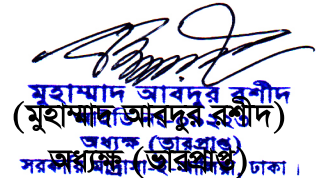 মুহাম্মাদ আবদুর রশীদ
(মুহাম্মাদ আবদুর রশীদ)
অধ্যক্ষ (ভারপ্রাপ্ত)
অধ্যক্ষ (ভারপ্রাপ্ত)
সরকারি মাদ্রাসা-ই ঢাকা।